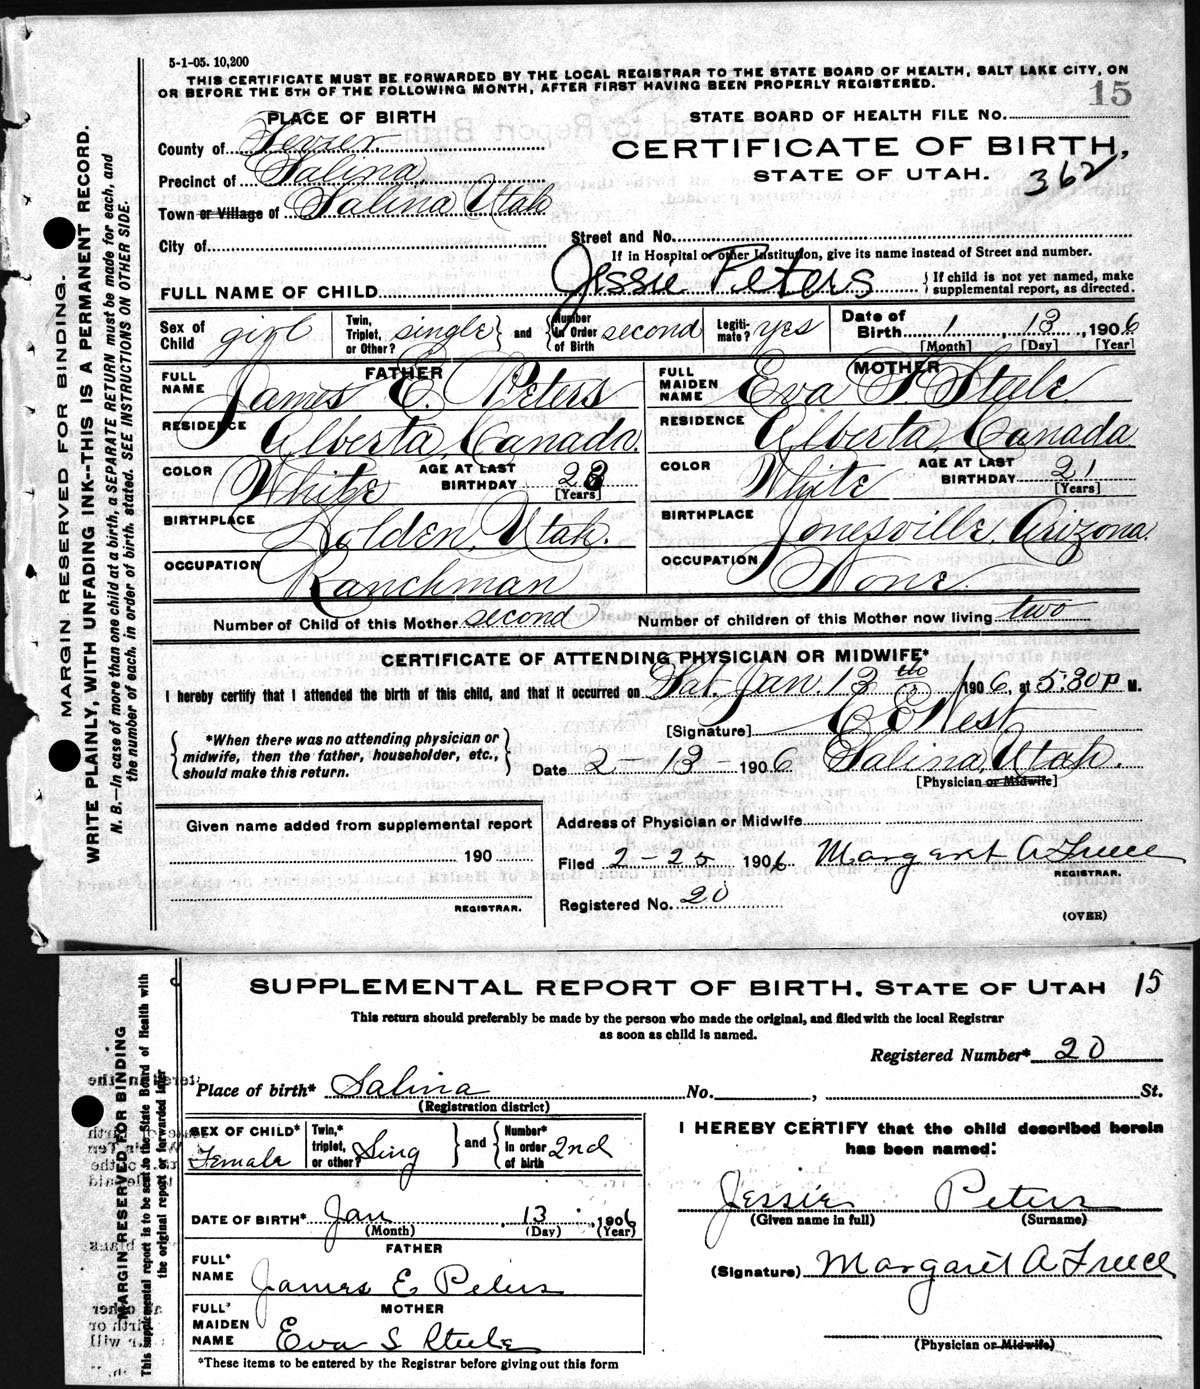 5-1-05. 10,200
THIS CERTIFICATE MUST BE FORWARDED BY THE LOCAL REGISTRAR TO THE STATE BOARD OF HEALTH, SALT LAKE CITY, ON
OR BEFORE THE 5TH OF THE FOLLOWING MONTH, AFTER FIRST HAVING BEEN PROPERLY REGISTERED.
15
PLACE OF BIRTH
STATE BOARD OF HEALTH FILE No.
County of Sevier
CERTIFICATE OF BIRTH,
Precinct of Salina,
STATE OF UTAH. 362
Town or Village of Salina Utah
City of
Street and No.
If in Hospital or other Institution, give its name instead of Street and number.
FULL NAME OF CHILD Jessie Peters { If child is not yet named, make supplemental report, as directed.
Sex of Child girl Twin, Triplet, or Other? single } and { Number In Order of Birth second Legitimate? yes Date of Birth 1 , 13 , 1906
[Month] [Day] [Year]
FATHER
FULL NAME James E. Peters
RESIDENCE Alberta, Canada.
COLOR White AGE AT LAST BIRTHDAY 23 [Years]
BIRTHPLACE Holden, Utah.
OCCUPATION Ranchman
MOTHER
FULL MAIDEN NAME Eva S. Steele.
RESIDENCE Alberta, Canada
COLOR White AGE AT LAST BIRTHDAY 21 [Years]
BIRTHPLACE Jonesville, Arizona.
OCCUPATION None.
Number of Child of this Mother second Number of children of this Mother now living two
CERTIFICATE OF ATTENDING PHYSICIAN OR MIDWIFE*
I hereby certify that I attended the birth of this child, and that it occurred on Sat. Jan. 13th 1906, at 5:30 P M.
{ *When there was no attending physician or midwife, then the father, householder, etc., should make this return. }
[Signature] E E West
Date 2 - 13 - 1906 Salina, Utah.
[Physician or Midwife]
Given name added from supplemental report
190
REGISTRAR.
Address of Physician or Midwife
Filed 2-25 1906 Margaret A Freece
REGISTRAR.
Registered No. 20
(OVER)
MARGIN RESERVED FOR BINDING.
WRITE PLAINLY, WITH UNFADING INK--THIS IS A PERMANENT RECORD.
N. B.—In case of more than one child at a birth, a SEPARATE RETURN must be made for each, and
the number of each, in order of birth, stated. SEE INSTRUCTIONS ON OTHER SIDE.
SUPPLEMENTAL REPORT OF BIRTH, STATE OF UTAH 15
This return should preferably be made by the person who made the original, and filed with the local Registrar
as soon as child is named.
Registered Number* 20
Place of birth* Salina No. , St.
(Registration district)
SEX OF CHILD* Female Twin,* triplet, or other? Sing } and { Number* in order of birth 2nd
DATE OF BIRTH* Jan , 13 , 1906
(Month) (Day) (Year)
FATHER
FULL* NAME James E Peters
MOTHER
FULL* MAIDEN NAME Eva S Steele
*These items to be entered by the Registrar before giving out this form
I HEREBY CERTIFY that the child described herein
has been named:
Jessie Peters
(Given name in full) (Surname)
(Signature) Margaret A Freece
(Physician or Midwife)
MARGIN RESERVED FOR BINDING
This supplemental report is to be sent to the State Board of Health with
the original report or forwarded later